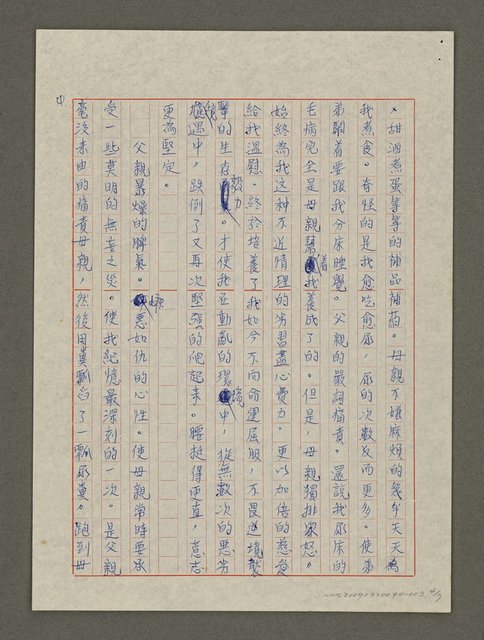 、甜酒煮蛋等等的補品補葯。母親不嫌麻煩的幾乎天天為
我煮食。奇怪的是我愈吃愈尿,尿的次數反而更多。使弟
弟鬧着要跟我分床睡覺。父親的嚴詞痛責。還說我尿床的
毛病完全是母親幫着我養成了的。但是,母親獨排衆怒。
始終為我这种不近情理的劣習盡心費力。更以加倍的慈愛
給我溫慰。終於培養了我如今不向命運屈服,不畏逆境襲
擊的生存毅力。才使我在動亂的環境中,從無數次的惡劣
境遇中,跌倒了又再次堅强的爬起來。腰挺得更直,意志
更為堅定。
父親暴燥的脾氣。嫉惡如仇的心性。使母親常時要承
受一些莫明的無妄之災。使我紀憶最深刻的一次。是父親
毫没来由的痛責母親,然後用糞瓢舀了一瓢尿糞。跑到母
4